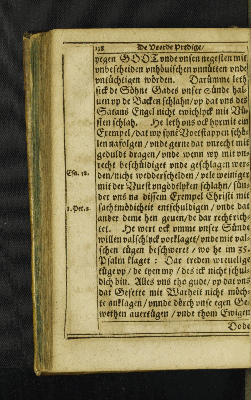 138 De Veerde Predige/
yegen GODT vnde vnsen negesten mit
vnbescheiden vnhöuischen vnnütten vnde
vntüchtigen wörden. Darümme leth
sick de Söhne Gades vnser Sünde hal-
uen vp de Backen schlahn/vp dat vns des
Satans Engel nicht ewichlyck mit Vü-
sten schlah. He leth vns ock hyrmit ein
Exempel/dat wy syne Voetstappen schö-
len nafolgen/vnde gerne dat vnrecht mit
geduldt dragen/vnde wenn wy mit vn-
recht beschüldiget vnde geschlagen wer-
den/nicht wedderschelden/vele weiniger
mit der Vuest vngödtlyken schlahn/sün-
der vns na dissem Exempel Christi mit
sachtmödicheit entschuldigen/vnde dat
ander deme hen geuen/de dar recht rich-
tet. He wert ock vmme vnser Sünde
willen valschlyck vorklaget/vnde mit val-
schen tügen beschweret/wo he im 35.
Psalm klaget: Dar treden wreuelige
tüge vp/de tyen my/des ick nicht schül-
dich bin. Alles vns tho gude/vp dat vns
dat Gesette mit Warheit nicht möch-
te anklagen/vnnde dörch vnse egen Ge-
wethen auertügen/vnde thom Ewigen
Dode
Esa. 50.
1. Pet. 2.